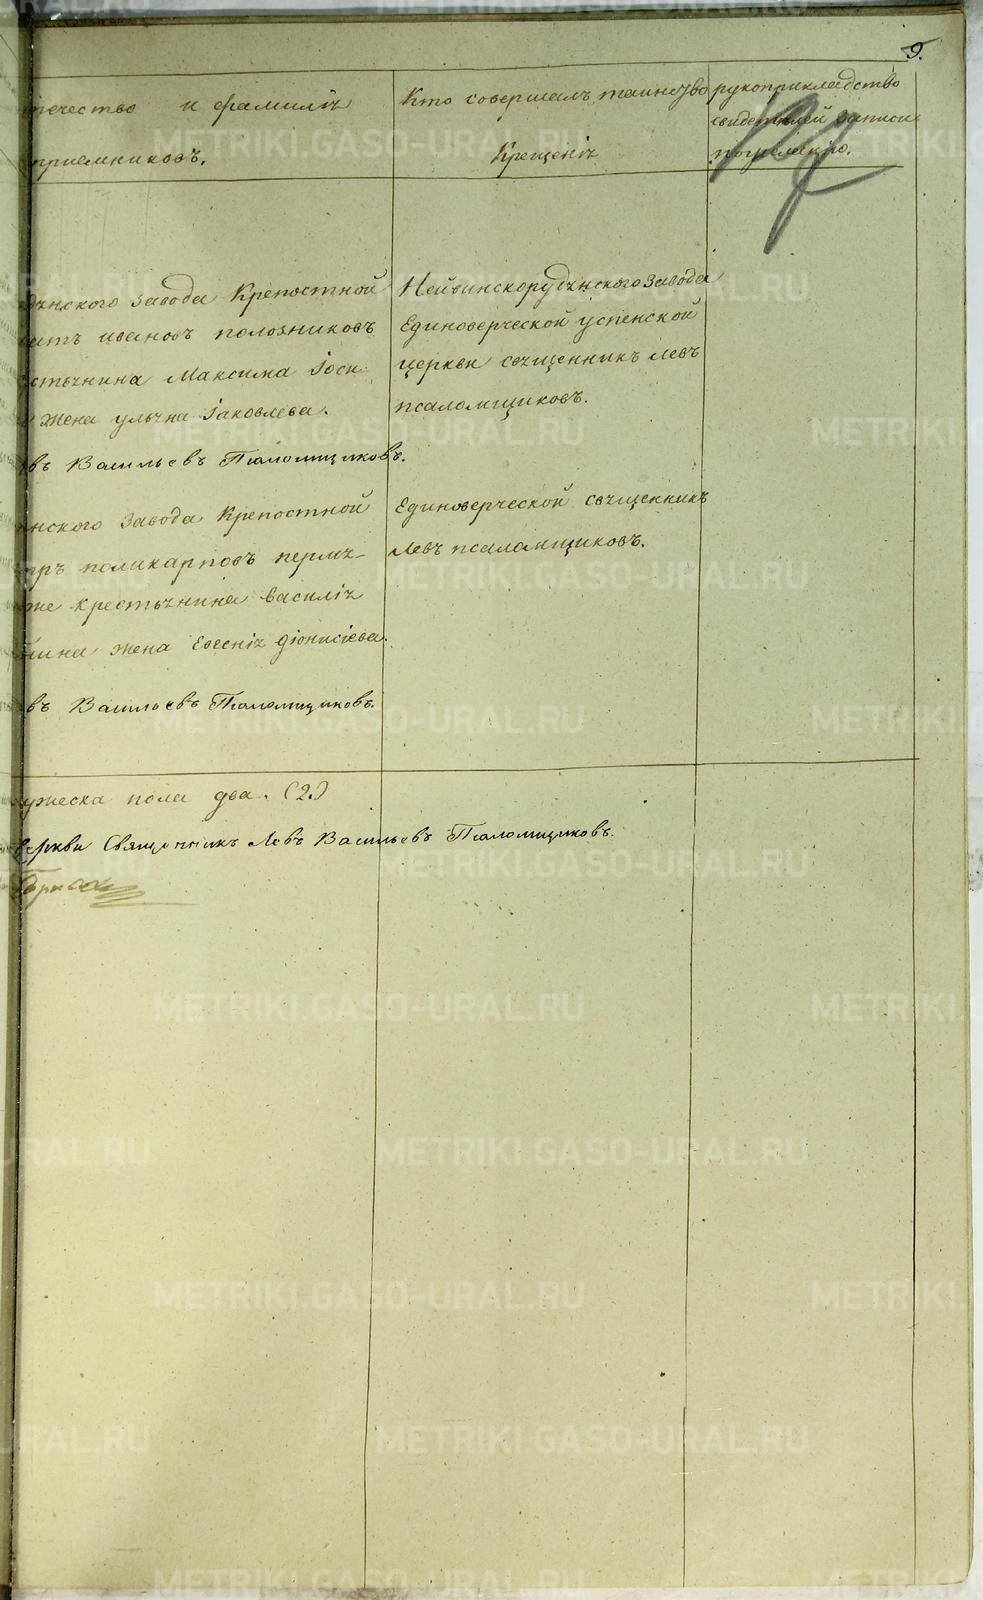 9.
течество и фамилія
приемниковъ.
Кто совершалъ таинство
Крещенія
рукоприкладство
свидетелей записи
по желанію.
дянского завода Крепостной
ивановъ полозниковъ
стьянина Максима Іоси
жена ульяна Іаковлева.
въ Васильевъ Псаломщиковъ.
Нейвинскорудянского завода
Единоверческой успенской
церкви священникъ левъ
псаломщиковъ.
нского завода Крепостной
тръ поликарповъ
же крестьянина василія
жена Евгенія діонисіева.
въ Васильевъ Псаломщиковъ.
Единоверческой священникъ
Левъ псаломщиковъ.
ужеска пола два. (2.)
церкви Священникъ Левъ Васильевъ Псаломщиковъ.
METRIKI.GASO-URAL.RU